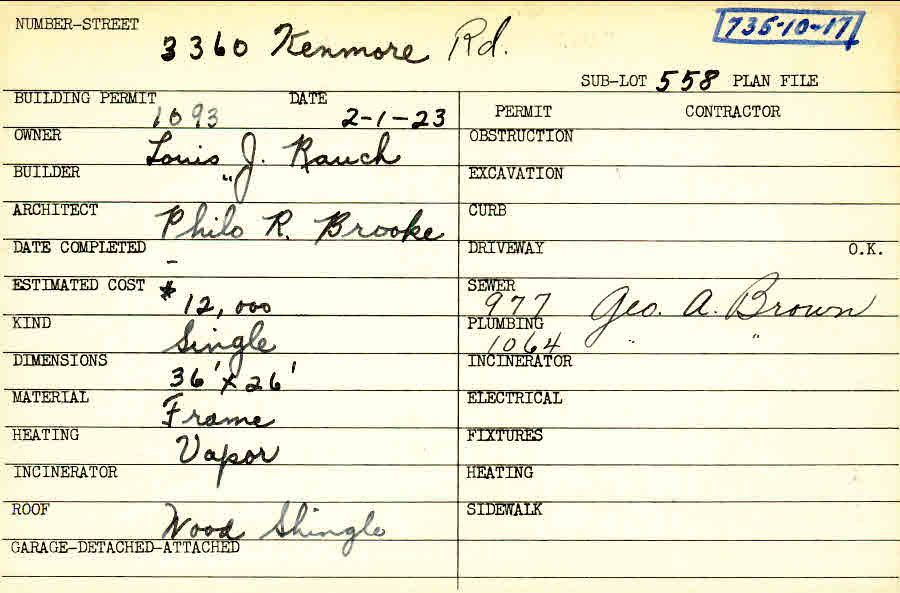 NUMBER-STREET 3360 Kenmore Rd. 736-10-17
SUB-LOT 558 PLAN FILE
BUILDING PERMIT 1093 DATE 2-1-23
OWNER Louis J. Rauch
BUILDER "
ARCHITECT Philo R. Brooke
DATE COMPLETED -
ESTIMATED COST $12,000
KIND Single
DIMENSIONS 36' x 26'
MATERIAL Frame
HEATING Vapor
INCINERATOR
ROOF Wood Shingle
GARAGE-DETACHED-ATTACHED
PERMIT CONTRACTOR
OBSTRUCTION
EXCAVATION
CURB
DRIVEWAY O.K.
SEWER 977 Geo. A. Brown
PLUMBING 1064 " "
INCINERATOR
ELECTRICAL
FIXTURES
HEATING
SIDEWALK